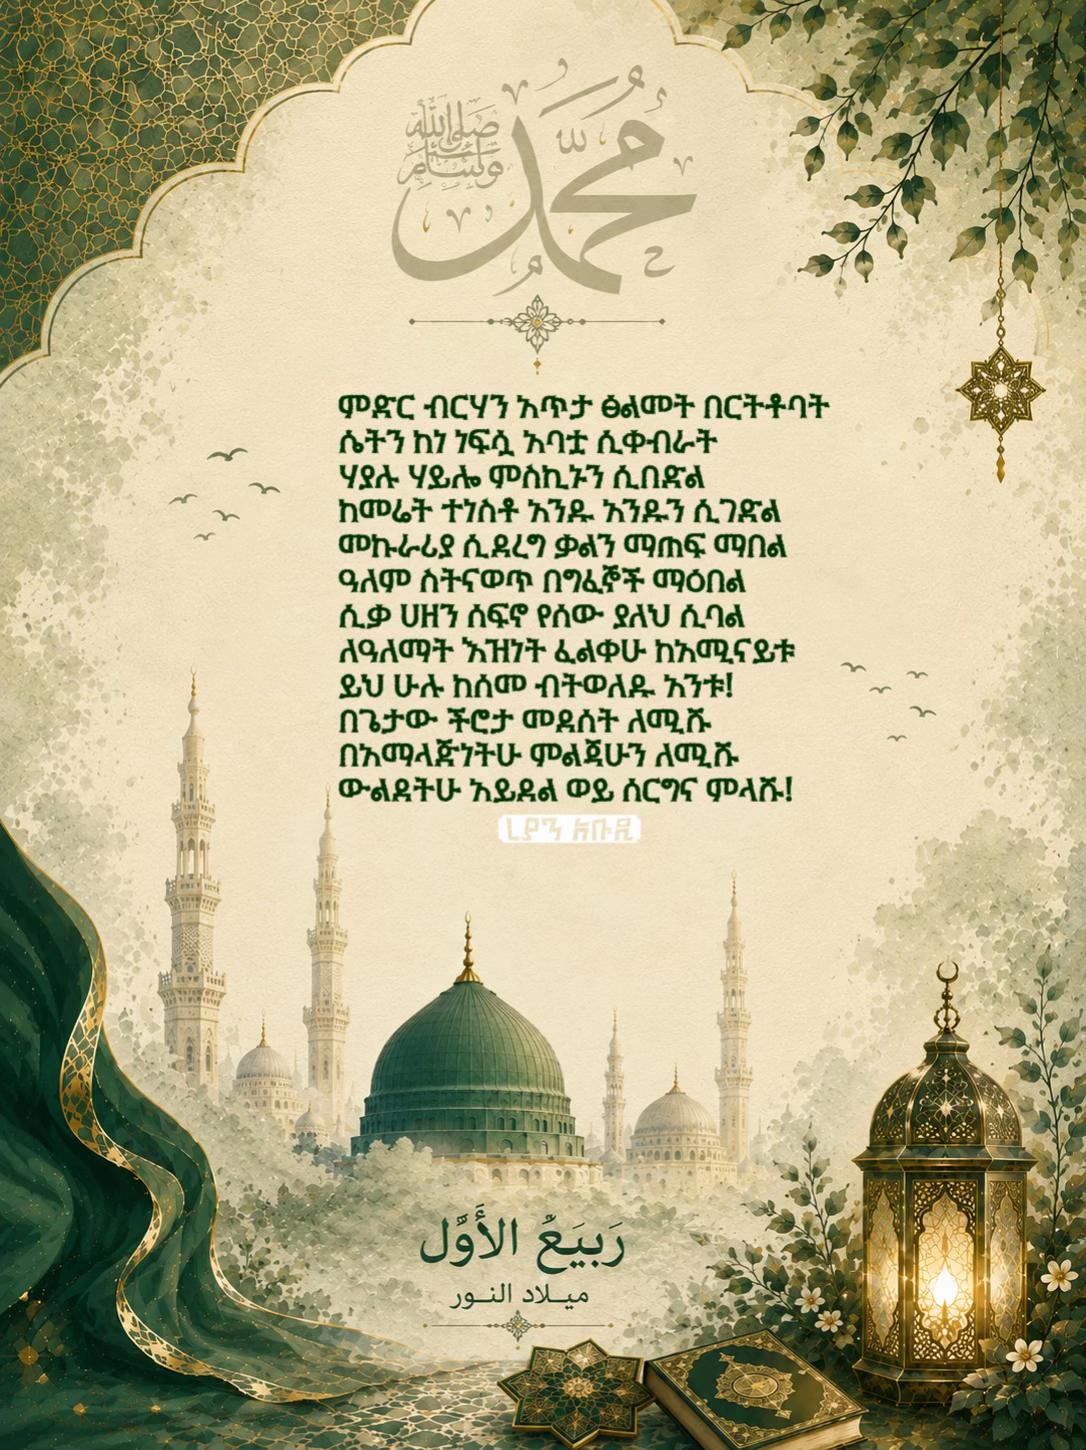 محمد
صلى الله
وسلم
ምድር ብርሃን አጥታ ፅልመት በርትቶባት
ሴትን ከነ ነፍሷ አባቷ ሲቀብራት
ሃያሉ ሃይሎ ምስኪኑን ሲበድል
ከመሬት ተነስቶ አንዱ አንዱን ሲገድል
መኩራሪያ ሲደረግ ቃልን ማጠፍ ማበል
ዓለም ስትናወጥ በግፈኞች ማዕበል
ሲቃ ሀዘን ሰፍኖ የሰው ያለህ ሲባል
ለዓለማት እዝነት ፈልቀሁ ከአሚናይቱ
ይህ ሁሉ ከሰመ ብትወለዱ አንቱ!
በጌታው ችሮታ መደሰት ለሚሹ
በአማላጅነትሁ ምልጃሁን ለሚሹ
ውልደትሁ አይደል ወይ ሰርግና ምላሹ!
ረያን አቡዲ
رَبيَعُ الأَوَّل
ميـلاد النـور